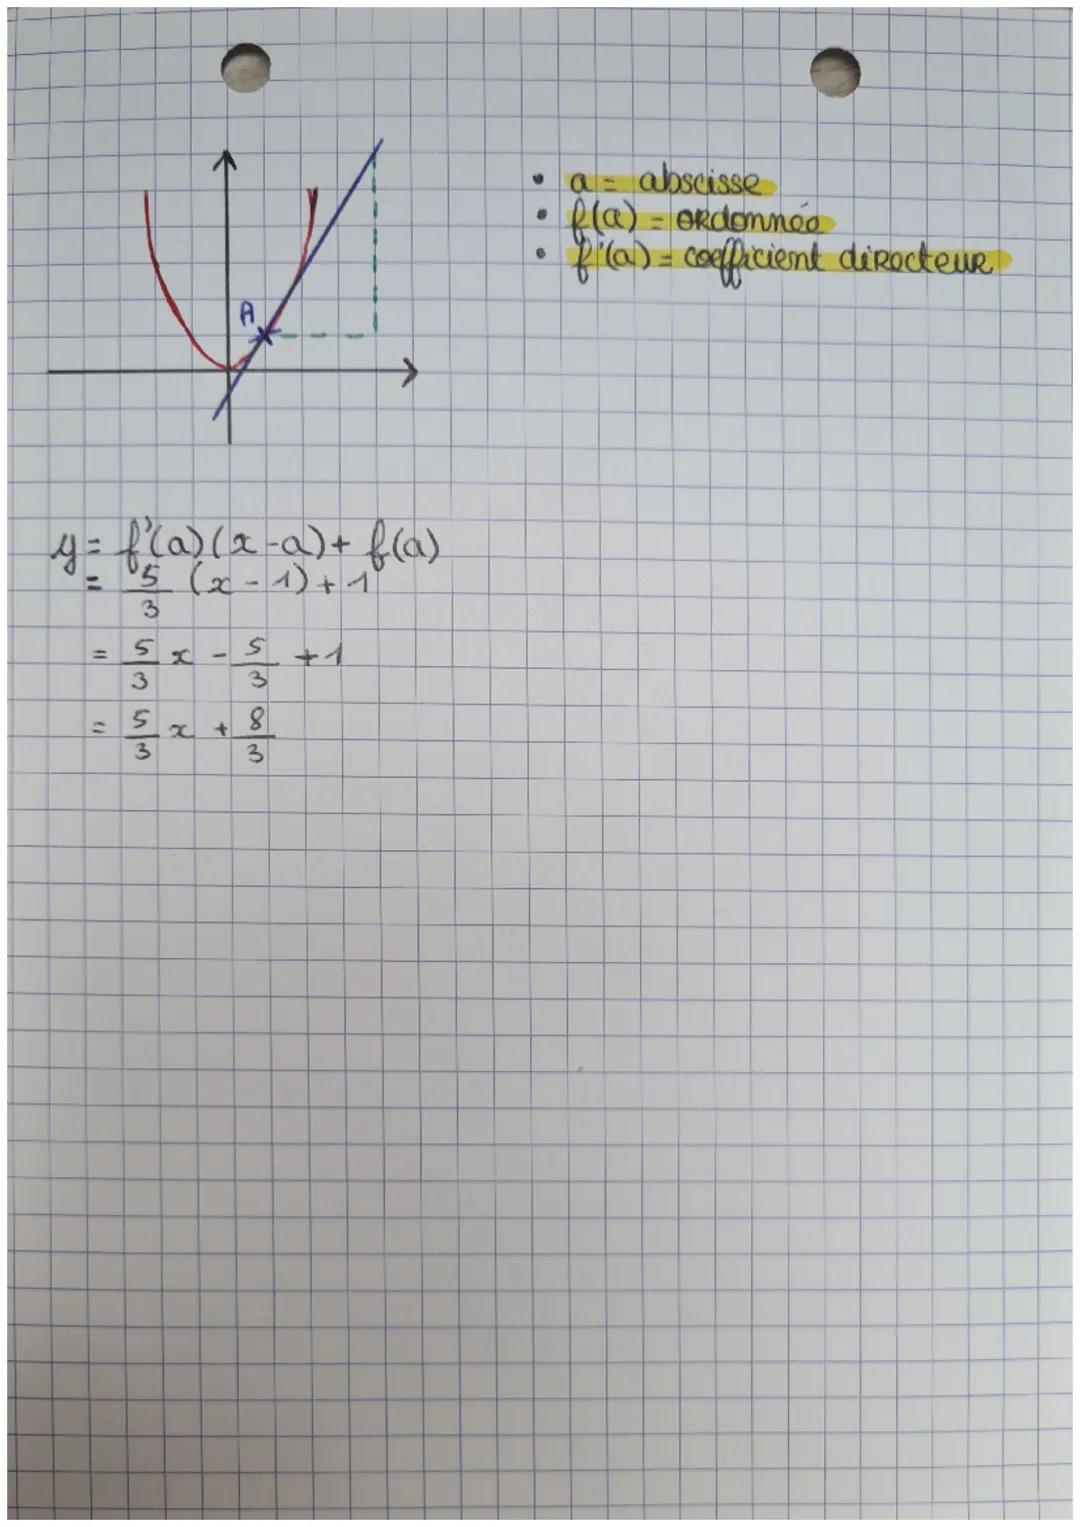 • a = abscisse
• f(a) = ordonnée
• f'(a) = coefficient directeur
A
y = f'(a)(x-a) + f(a)
= 5/3 (x - 1) + 1
= 5/3 x - 5/3 + 1
= 5/3 x + 8/3